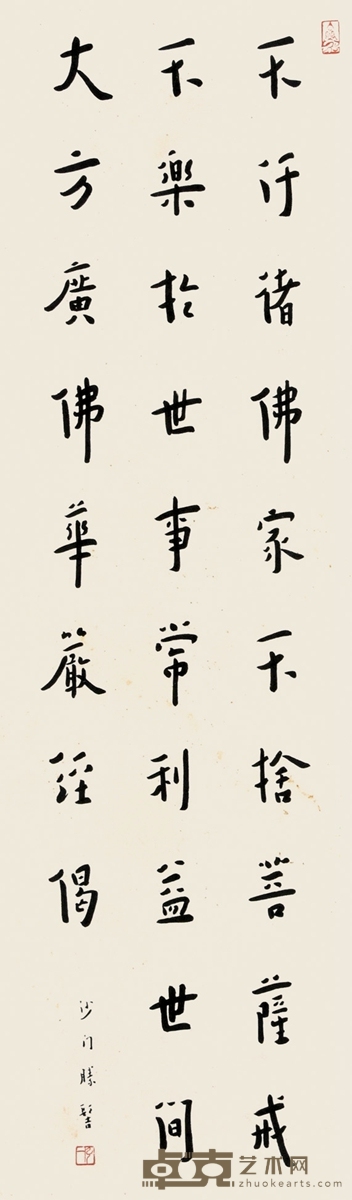 不汙諸佛家不捨菩薩戒
不樂於世事常利益世間
大方廣佛華嚴經偈
沙門勝髻
卓克艺术网
zhuokearts.com